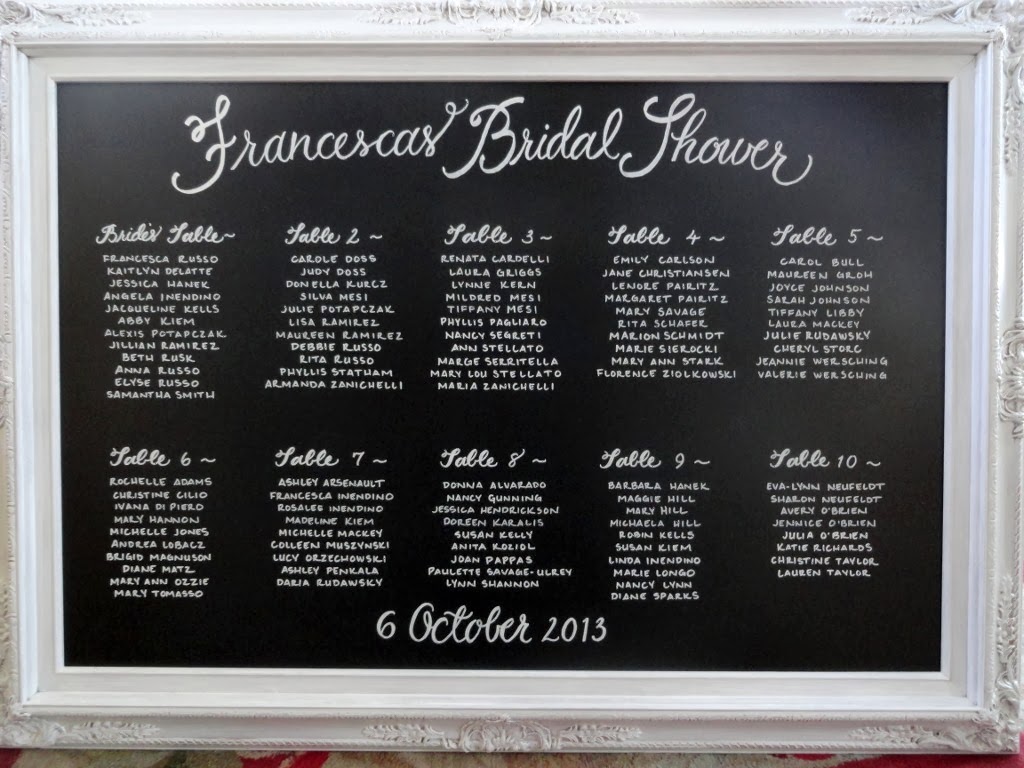 Francescas' Bridal Shower
Bride's Table ~
FRANCESCA RUSSO
KAITLYN DELATTE
JESSICA HANEK
ANGELA INENDINO
JACQUELINE KELLS
ABBY KIEM
ALEXIS POTAPCZAK
JILLIAN RAMIREZ
BETH RUSK
ANNA RUSSO
ELYSE RUSSO
SAMANTHA SMITH
Table 2 ~
CAROLE DOSS
JUDY DOSS
DONIELLA KURCZ
SILVA MESI
JULIE POTAPCZAK
LISA RAMIREZ
MAUREEN RAMIREZ
DEBBIE RUSSO
RITA RUSSO
PHYLLIS STATHAM
ARMANDA ZANICHELLI
Table 3 ~
RENATA CARDELLI
LAURA GRIGGS
LYNNE KERN
MILDRED MESI
TIFFANY MESI
PHYLLIS PAGLIARO
NANCY SEGRETI
ANN STELLATO
MARGE SERRITELLA
MARY LOU STELLATO
MARIA ZANICHELLI
Table 4 ~
EMILY CARLSON
JANE CHRISTIANSEN
LENORE PAIRITZ
MARGARET PAIRITZ
MARY SAVAGE
RITA SCHAFER
MARION SCHMIDT
MARIE SIEROCKI
MARY ANN STARK
FLORENCE ZIOLKOWSKI
Table 5 ~
CAROL BULL
MAUREEN GROH
JOYCE JOHNSON
SARAH JOHNSON
TIFFANY LIBBY
LAURA MACKEY
JULIE RUDAWSKY
CHERYL STORC
JEANNIE WERSCHING
VALERIE WERSCHING
Table 6 ~
ROCHELLE ADAMS
CHRISTINE CILIO
IVANA DI PIERO
MARY HANNON
MICHELLE JONES
ANDREA LOBACZ
BRIGID MAGNUSON
DIANE MATZ
MARY ANN OZZIE
MARY TOMASSO
Table 7 ~
ASHLEY ARSENAULT
FRANCESCA INENDINO
ROSALEE INENDINO
MADELINE KIEM
MICHELLE MACKEY
COLLEEN MUSZYNSKI
LUCY ORZECHOWSKI
ASHLEY PENKALA
DARIA RUDAWSKY
Table 8 ~
DONNA ALVARADO
NANCY GUNNING
JESSICA HENDRICKSON
DOREEN KARALIS
SUSAN KELLY
ANITA KOZIOL
JOAN PAPPAS
PAULETTE SAVAGE-ULREY
LYNN SHANNON
Table 9 ~
BARBARA HANEK
MAGGIE HILL
MARY HILL
MICHAELA HILL
ROBIN KELLS
SUSAN KIEM
LINDA INENDINO
MARIE LONGO
NANCY LYNN
DIANE SPARKS
Table 10 ~
EVA-LYNN NEUFELDT
SHARON NEUFELDT
AVERY O'BRIEN
JENNICE O'BRIEN
JULIA O'BRIEN
KATIE RICHARDS
CHRISTINE TAYLOR
LAUREN TAYLOR
6 October 2013